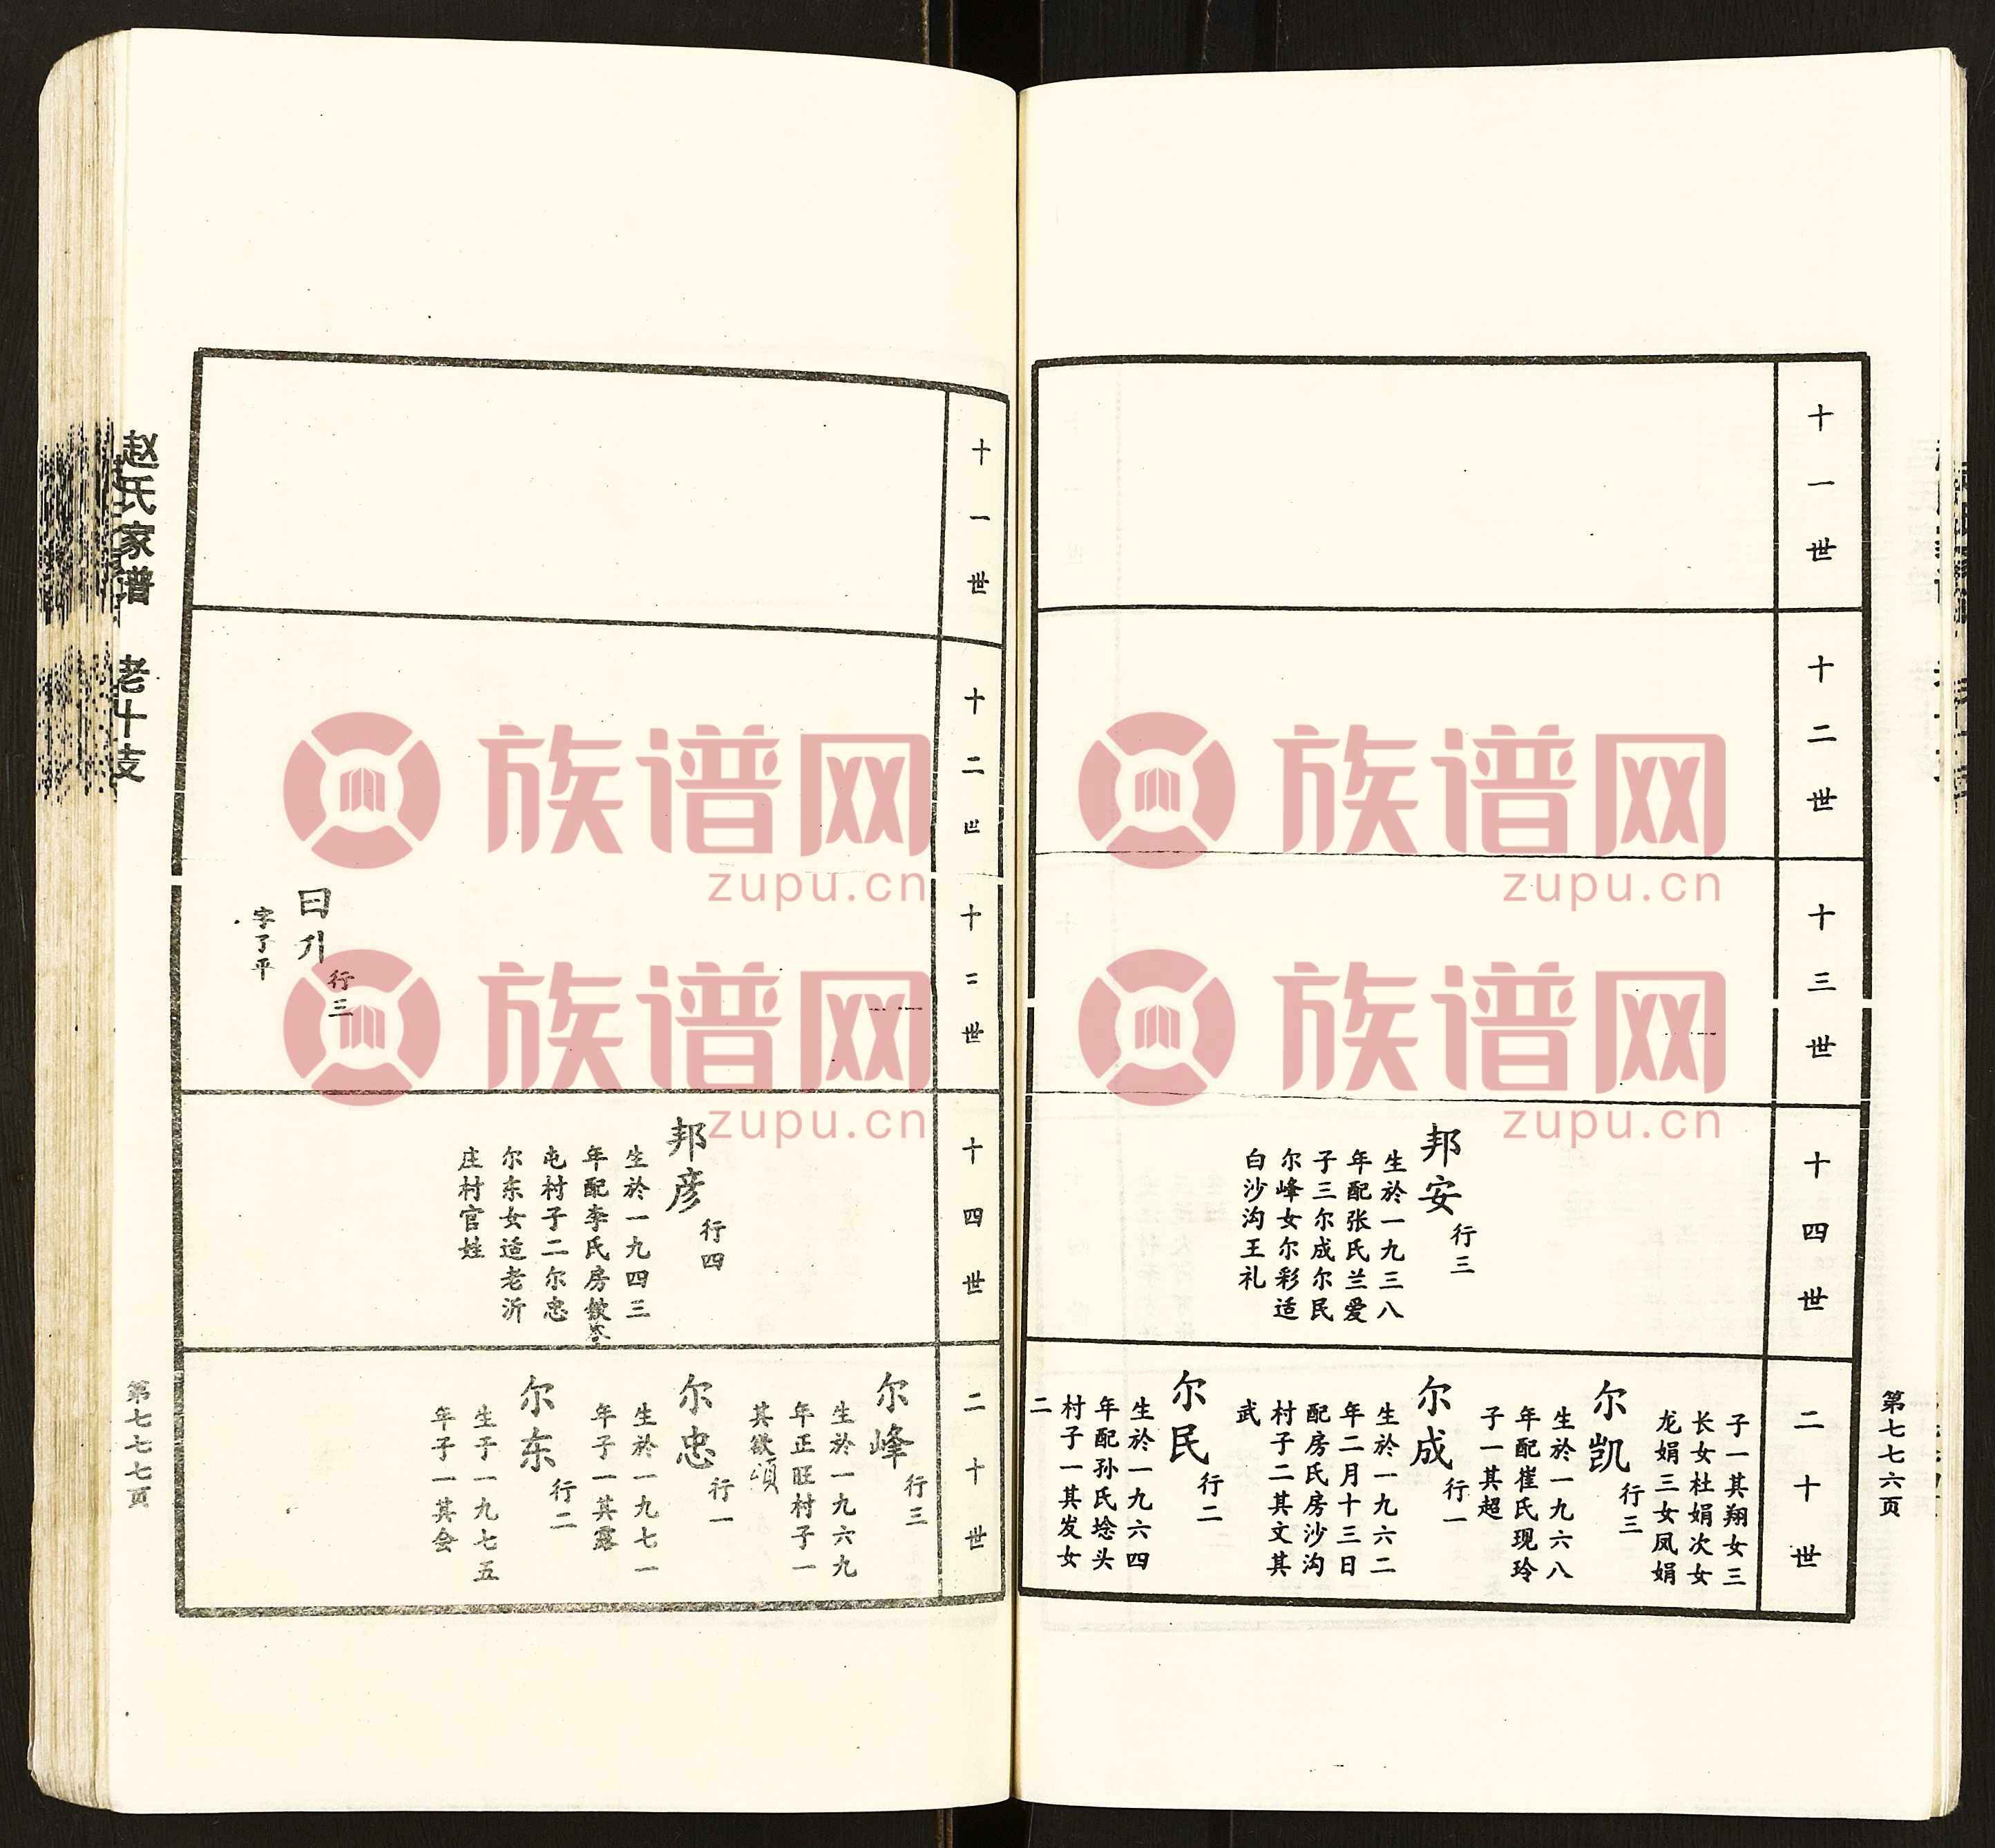 第七七六页
十一世
十二世
十三世
十四世
邦安
行三
生於一九三八
年配张氏兰爱
子三尔成尔民
尔峰女尔彩适
白沙沟王礼
二十世
子一其翔女三
长女杜娟次女
龙娟三女凤娟
尔凯
行三
生於一九六八
年配崔氏现玲
子一其超
尔成
行一
生於一九六二
年二月十三日
配房氏房沙沟
村子二其文其
武
尔民
行二
生於一九六四
年配孙氏埝头
村子一其发女
二
十一世
十二
十 世
行三
字了平
十四世
邦彦
行四
生於一九四三
年配李氏房
屯村子二尔忠
尔东女适老沂
庄村官姓
二十世
尔峰
行三
生於一九六九
年正旺村子一
其欲颂
尔忠
行一
生於一九七一
年子一其露
尔东
行二
生于一九七五
年子一其会
赵氏家谱 老十支
第七七七页
族谱网
zupu.cn
族谱网
zupu.cn
族谱网
zupu.cn
族谱网
zupu.cn